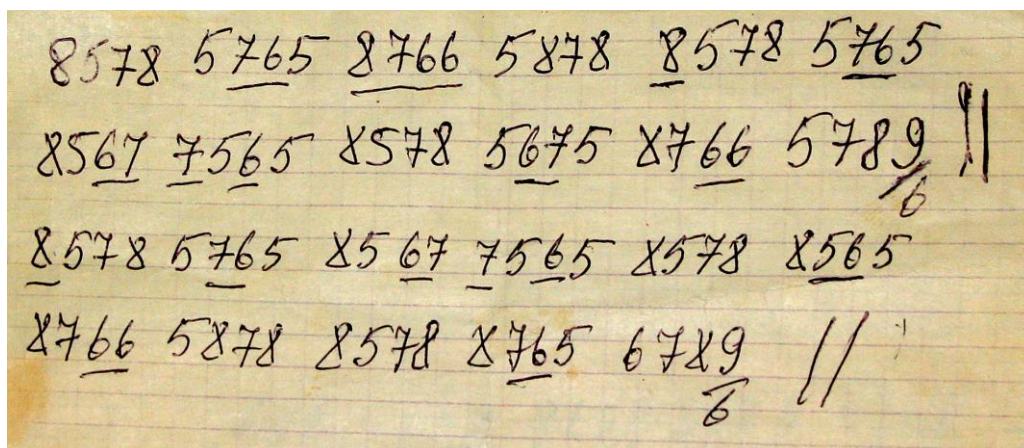 8578 5765 8766 5878 8578 5765
8567 7565 8578 5675 8766 5789/6 ||
8578 5765 8567 7565 8578 8565
8766 5878 8578 8765 6789/6 //